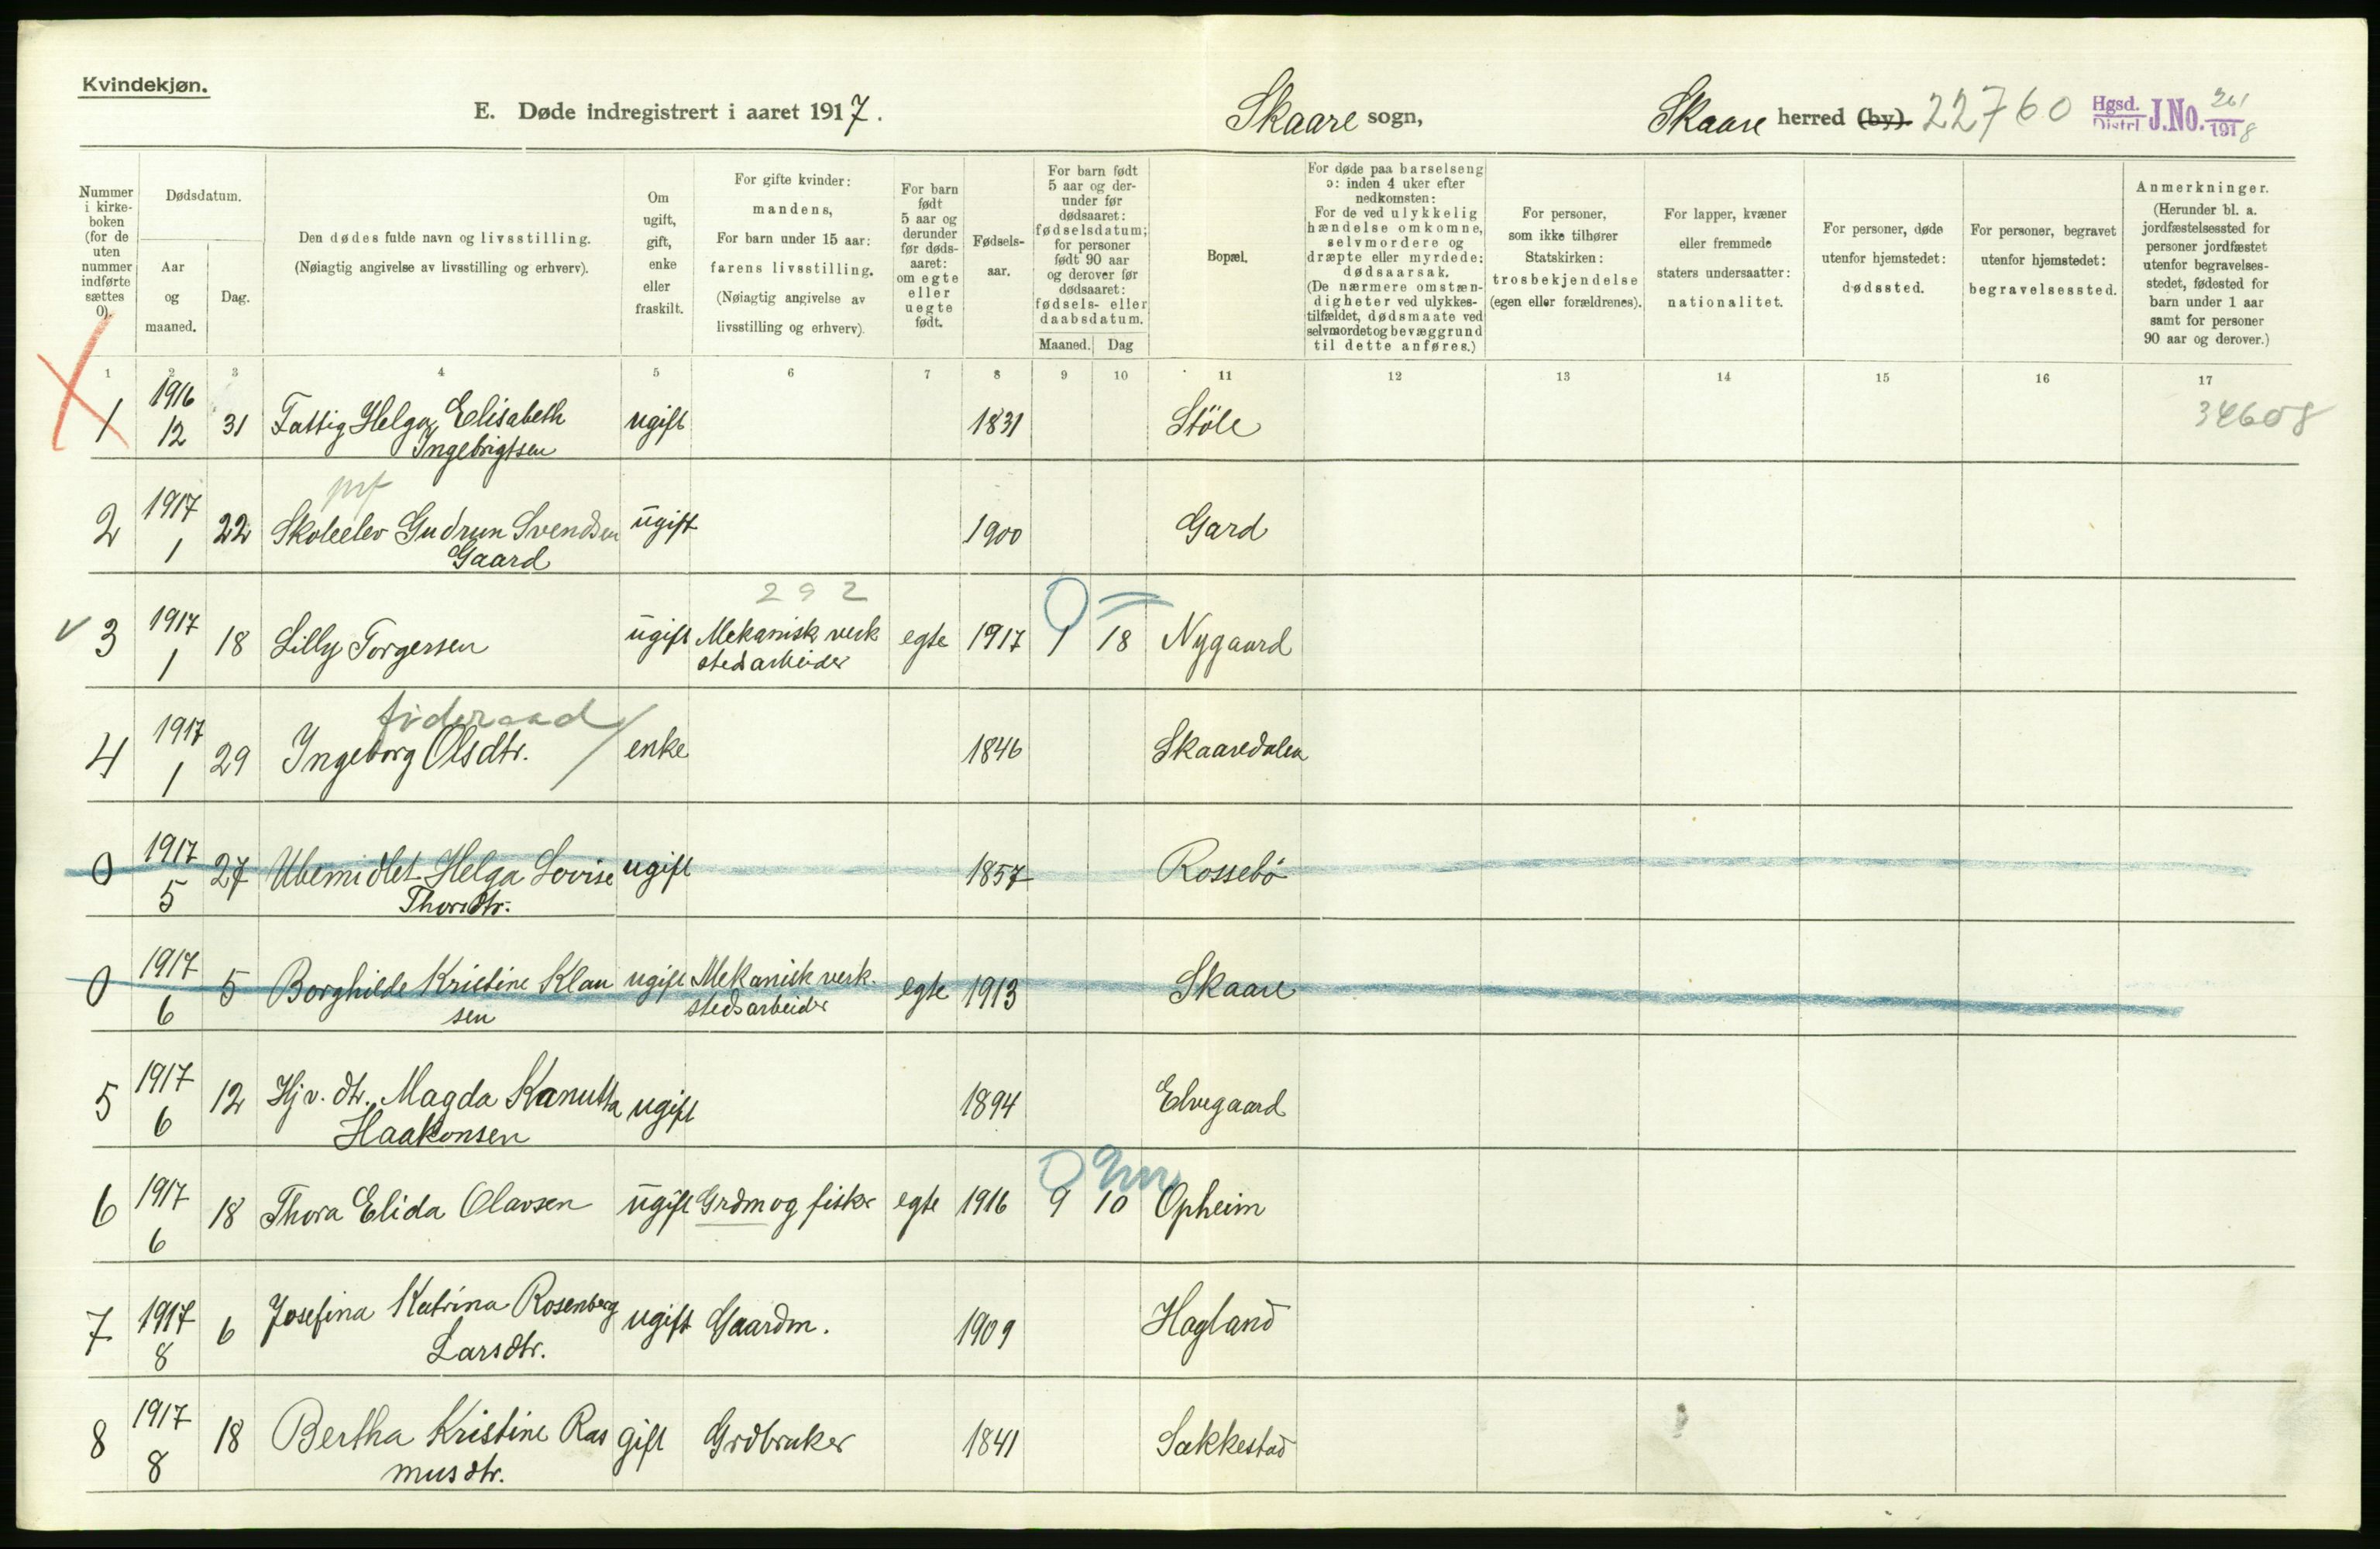 Kvindekjøn.
E. Døde indregistrert i aaret 1917.
Skaare sogn,
Skaare herred (by). 22760
Hgsd. Distrl J.No. 261/1918
Nummer i kirke-boken (for de uten nummer indførte sættes 0).
Dødsdatum.
Aar og maaned.
Dag.
Den dødes fulde navn og livsstilling.
(Nøiagtig angivelse av livsstilling og erhverv).
Om ugift, gift, enke eller fraskilt.
For gifte kvinder: mandens,
For barn under 15 aar: farens livsstilling.
(Nøiagtig angivelse av livsstilling og erhverv).
For barn født 5 aar og derunder før døds-aaret: om egte eller uegte født.
Fødsels-aar.
For barn født 5 aar og der-under før dødsaaret: fødselsdatum; for personer født 90 aar og derover før dødsaaret: fødsels- eller daabsdatum.
Maaned. Dag
Bopæl.
For døde paa barselseng ɔ: inden 4 uker efter nedkomsten:
For de ved ulykkelig hændelse omkomne, selvmordere og dræpte eller myrdede: dødsaarsak.
(De nærmere omstæn-digheter ved ulykkes-tilfældet, dødsmaate ved selvmordet og bevæggrund til dette anføres.)
For personer, som ikke tilhører Statskirken: trosbekjendelse (egen eller forældrenes).
For lapper, kvæner eller fremmede staters undersaatter: nationalitet.
For personer, døde utenfor hjemstedet: dødssted.
For personer, begravet utenfor hjemstedet: begravelsessted.
Anmerkninger.
(Herunder bl. a. jordfæstelsessted for personer jordfæstet utenfor begravelses-stedet, fødested for barn under 1 aar samt for personer 90 aar og derover.)
1 2 3 4 5 6 7 8 9 10 11 12 13 14 15 16 17
1 1916 12 31 Fattig Helga Elisabeth Ingebrigtsen ugift 1831 Støle 34608
2 1917 1 22 Skoleelev Gudrun Svendsen Gaard ugift 1900 Gard
292
3 1917 1 18 Lilly Torgersen ugift Mekanisk verkstedarbeider egte 1917 1 18 Nygaard
føderaad
4 1917 1 29 Ingeborg Olsdtr. enke 1846 Skaaredalen
0 1917 5 27 Ubemidlet Helga Lovise Thorsdtr. ugift 1857 Rossebø
0 1917 6 5 Borghilde Kristine Klausen ugift Mekanisk verk. stedsarbeider egte 1913 Skaare
5 1917 6 12 Hjv. dtr. Magda Kanutta Haakonsen ugift 1894 Elvegaard
0 9m
6 1917 6 18 Thora Elida Olavsen ugift Grdm og fisker egte 1916 9 10 Opheim
7 1917 8 6 Josefina Katrina Rosenberg Larsdtr. ugift Gaardm. 1909 Hagland
8 1917 8 18 Bertha Kristine Rasmusdtr. gift Grdbruker 1841 Sakkestad